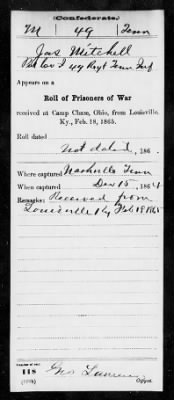 (Confederate.)
M 49 Tenn
Jas Mitchell
Pvt Co I 49 Regt Tenn Inf
Appears on a
Roll of Prisoners of War
received at Camp Chase, Ohio, from Louisville,
Ky., Feb. 18, 1865.
Roll dated
Not dated, 186 .
Where captured Nashville Tenn
When captured Dec 15, 1864
Remarks: Received from
Louisville Ky Feb 18 1865
Number of roll:
118
Geo
Copyist.